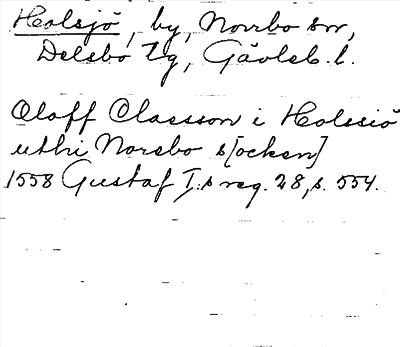 Holsjö, by, Norrbo sn,
Delsbo tg, Gävleb. l.
Oloff Classon i Holssiö
uthi Norsbo s[ocken]
1558 Gustaf I:s reg. 28, s. 554.